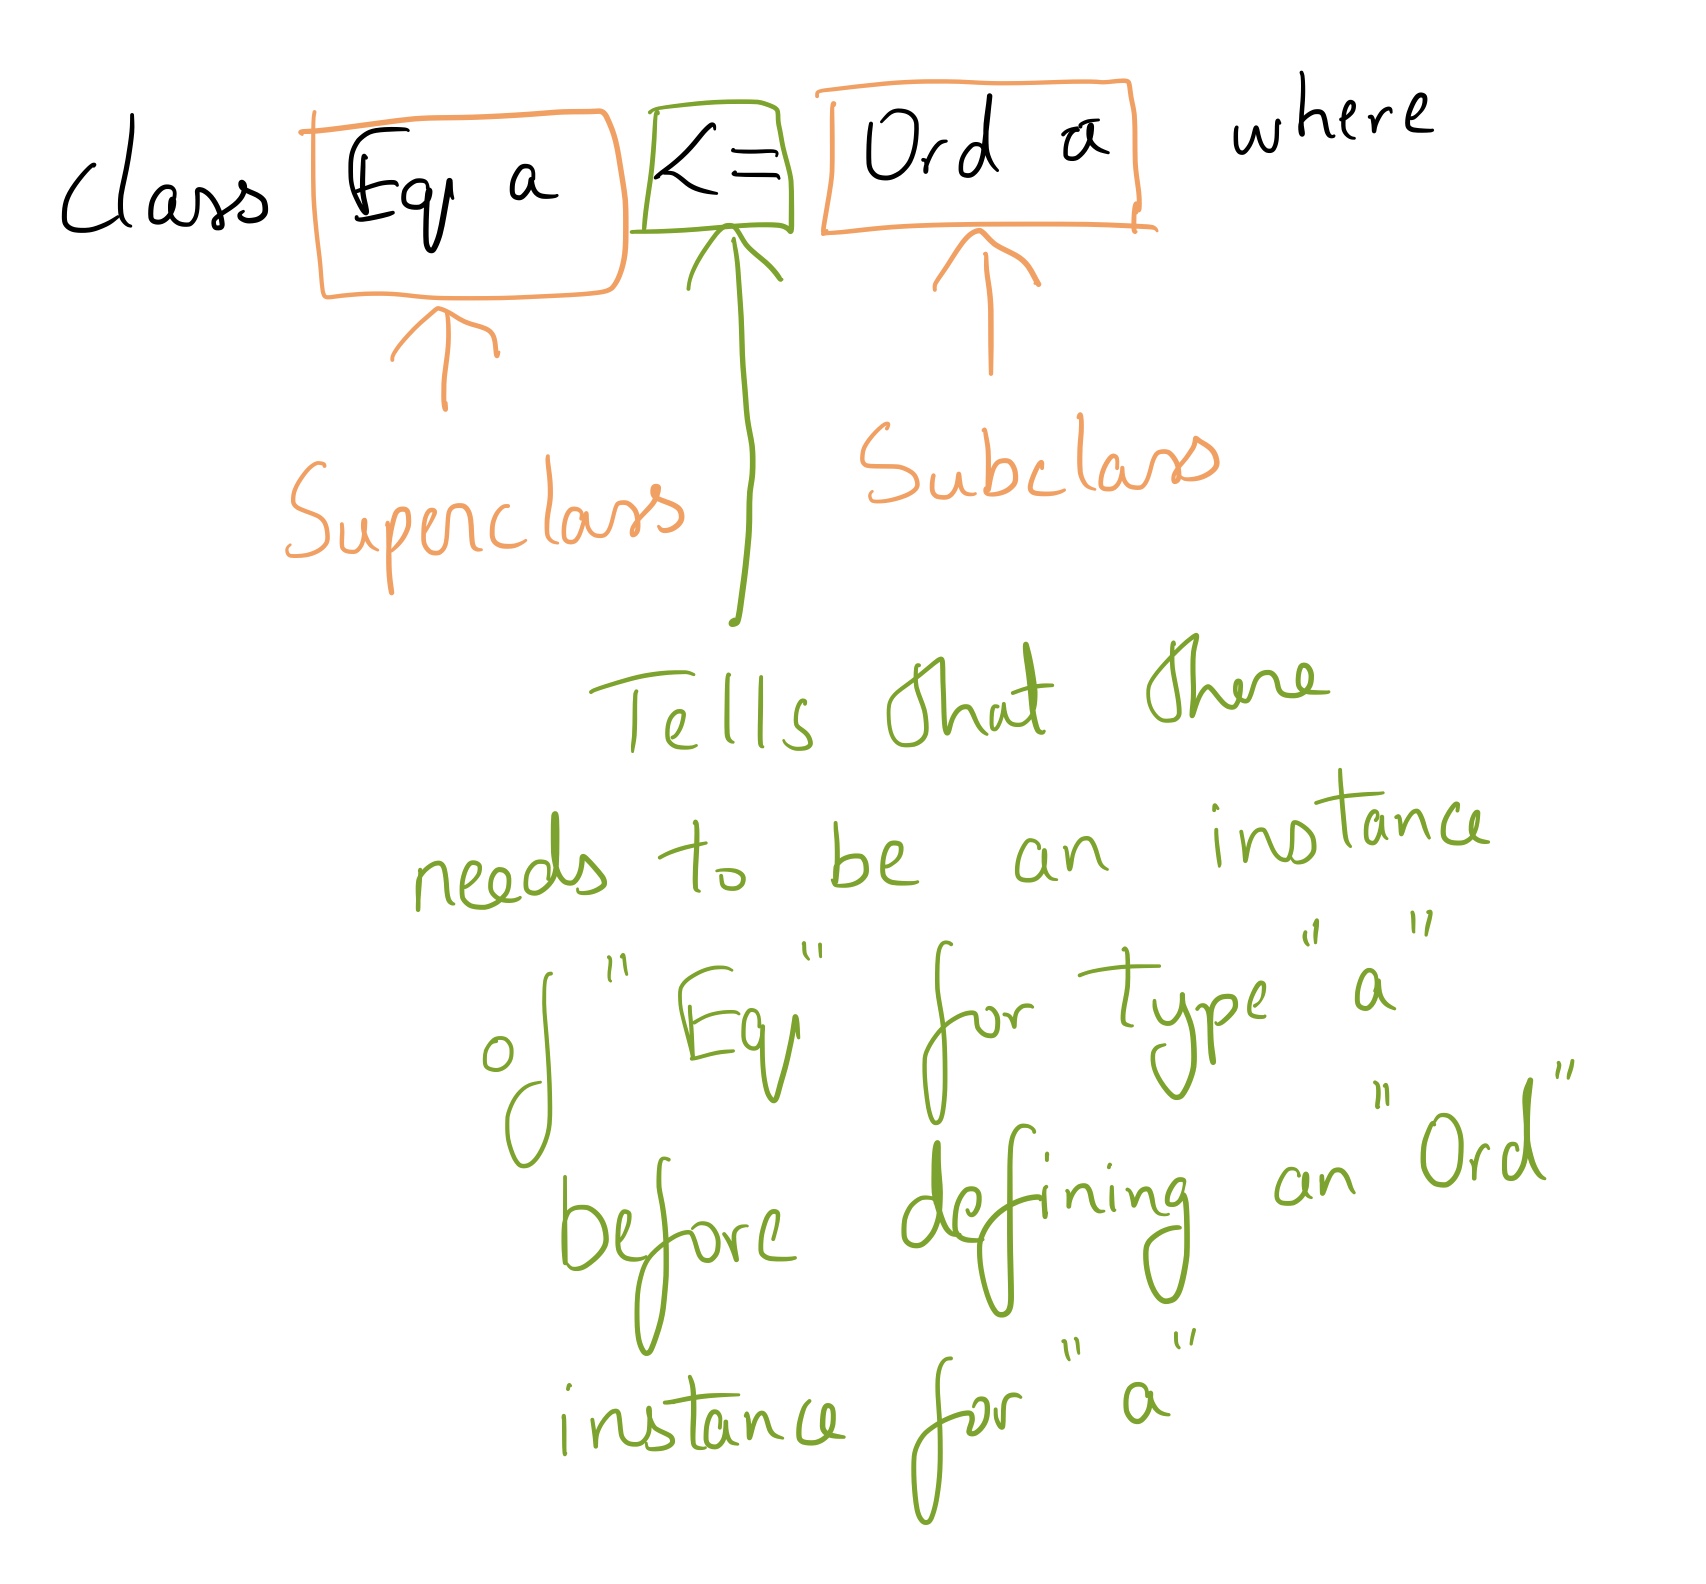 class Eq a <= Ord a where
Superclass
Subclass
Tells that there
needs to be an instance
of "Eq" for Type "a"
before defining an "Ord"
instance for "a"